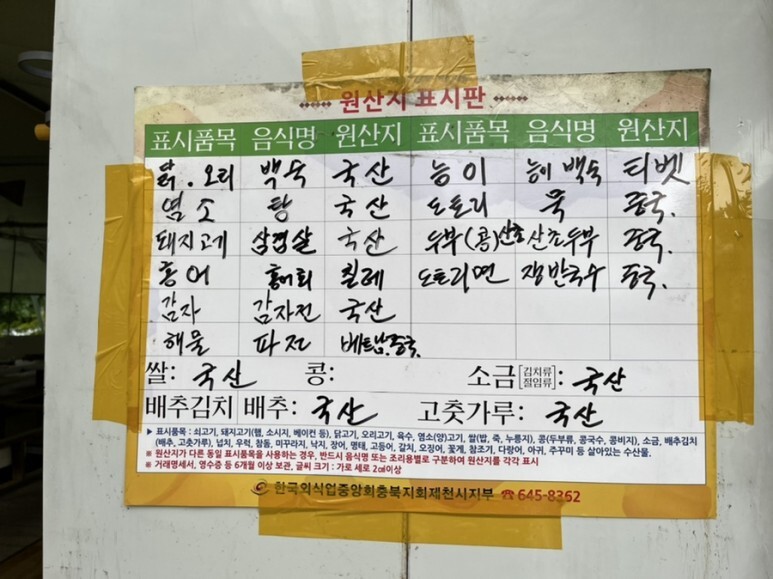 원산지 표시판
표시품목 음식명 원산지 표시품목 음식명 원산지
닭.오리 백숙 국산 능이 능이 백숙 티벳
염소 탕 국산 도토리 묵 중국.
돼지고기 삼겹살 국산 두부(콩)산초 산초두부 중국.
홍어 홍어회 칠레 도토리면 쟁반국수 중국.
감자 감자전 국산
해물 파전 베트남.중국.
쌀: 국산 콩: 소금[김치류 절임류]: 국산
배추김치 배추: 국산 고춧가루: 국산
▶ 표시품목 : 쇠고기, 돼지고기(햄, 소시지, 베이컨 등), 닭고기, 오리고기, 육수, 염소(양)고기, 쌀(밥, 죽, 누룽지), 콩(두부류, 콩국수, 콩비지), 소금, 배추김치
(배추, 고춧가루), 넙치, 우럭, 참돔, 미꾸라지, 낙지, 장어, 명태, 고등어, 갈치, 오징어, 꽃게, 참조기, 다랑어, 아귀, 주꾸미 등 살아있는 수산물.
※ 원산지가 다른 동일 표시품목을 사용하는 경우, 반드시 음식명 또는 조리용별로 구분하여 원산지를 각각 표시
※ 거래명세서, 영수증 등 6개월 이상 보관, 글씨 크기 : 가로 세로 2㎝이상
한국외식업중앙회충북지회제천시지부 ☎645-8362